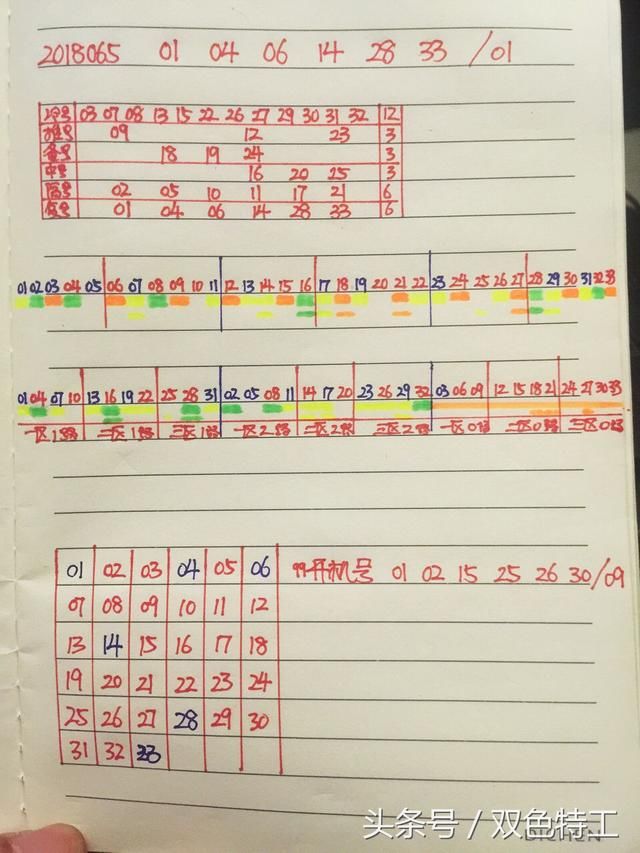 2018065 01 04 06 14 28 33 / 01
冷号 03 07 08 13 15 22 26 27 29 30 31 32 12
09 12 23 3
18 19 24 3
中号 16 20 25 3
02 05 10 11 17 21 6
01 04 06 14 28 33 6
01 02 03 04 05 06 07 08 09 10 11 12 13 14 15 16 17 18 19 20 21 22 23 24 25 26 27 28 29 30 31 32 33
01 04 07 10 13 16 19 22 25 28 31 02 05 08 11 14 17 20 23 26 29 32 03 06 09 12 15 18 21 24 27 30 33
一区1路 二区1路 三区1路 一区2路 二区2路 三区2路 一区0路 二区0路 三区0路
01 02 03 04 05 06 开机号 01 02 15 25 26 30/09
07 08 09 10 11 12
13 14 15 16 17 18
19 20 21 22 23 24
25 26 27 28 29 30
31 32 33
头条号 / 双色特工